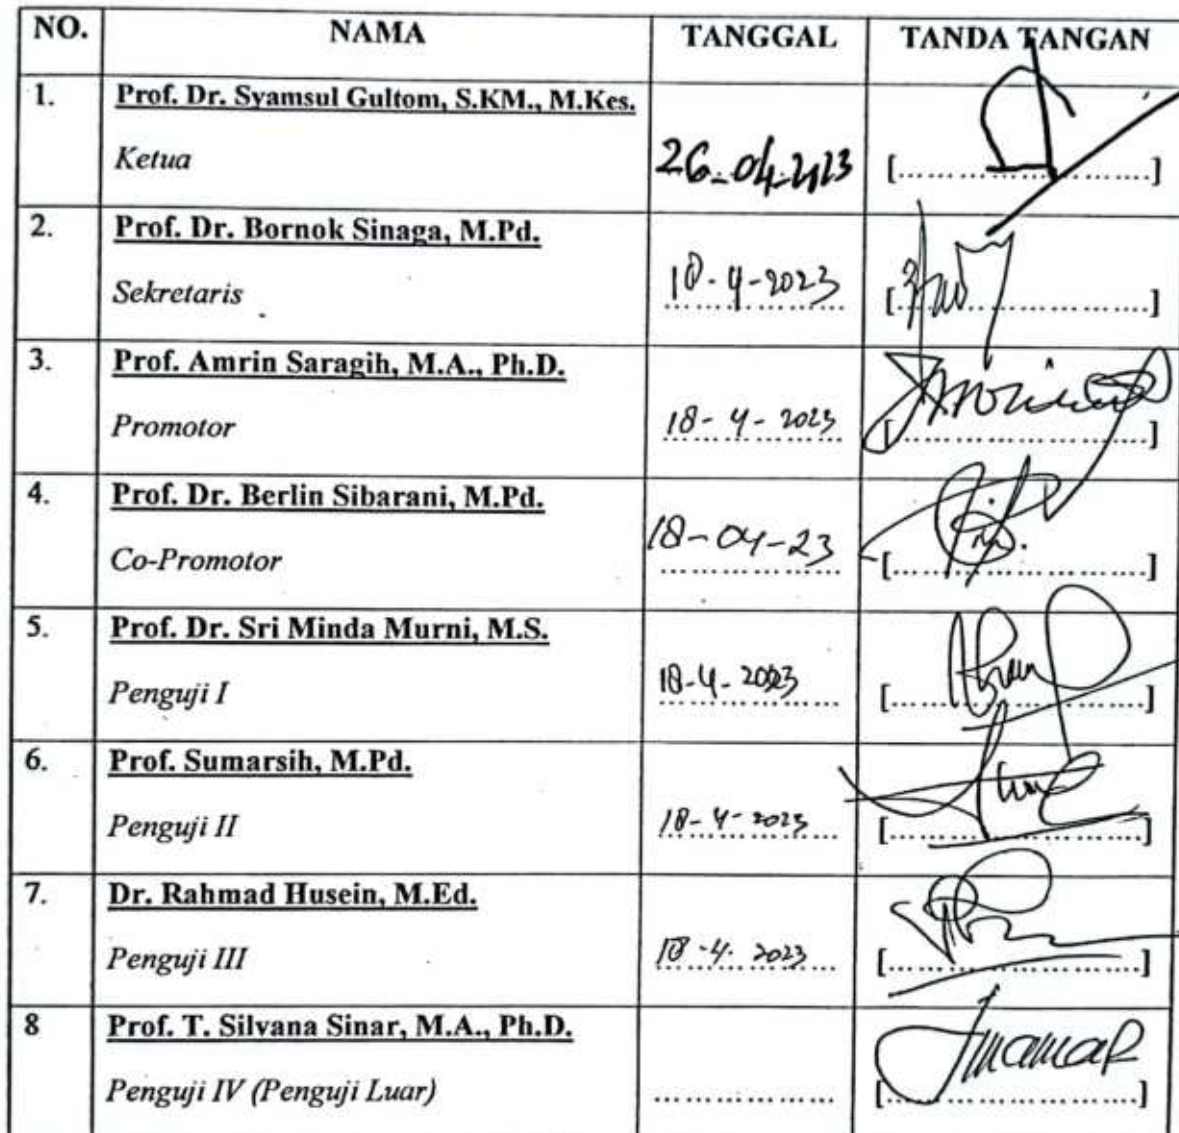 NO. NAMA TANGGAL TANDA TANGAN
1. Prof. Dr. Syamsul Gultom, S.KM., M.Kes.
Ketua 26-04-2023 [..............................]
2. Prof. Dr. Bornok Sinaga, M.Pd.
Sekretaris 18-4-2023 [..............................]
3. Prof. Amrin Saragih, M.A., Ph.D.
Promotor 18-4-2023 [..............................]
4. Prof. Dr. Berlin Sibarani, M.Pd.
Co-Promotor 18-04-23 [..............................]
5. Prof. Dr. Sri Minda Murni, M.S.
Penguji I 18-4-2023 [..............................]
6. Prof. Sumarsih, M.Pd.
Penguji II 18-4-2023 [..............................]
7. Dr. Rahmad Husein, M.Ed.
Penguji III 18-4. 2023 [..............................]
8 Prof. T. Silvana Sinar, M.A., Ph.D.
Penguji IV (Penguji Luar) .................. [..............................]